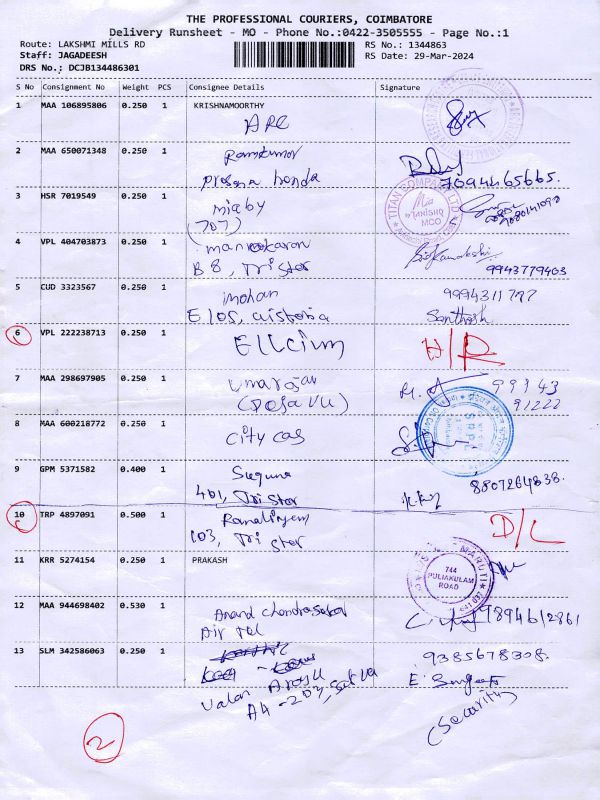 THE PROFESSIONAL COURIERS, COIMBATORE
Delivery Runsheet - MO - Phone No.:0422-3505555 - Page No.:1
Route: LAKSHMI MILLS RD RS No.: 1344863
Staff: JAGADEESH RS Date: 29-Mar-2024
DRS No.: DCJB134486301
S No Consignment No Weight PCS Consignee Details Signature
1 MAA 106895806 0.250 1 KRISHNAMOORTHY
2 MAA 650071348 0.250 1 Ramkumar
prosana honda 7094465665.
3 HSR 7019549 0.250 1 migby
(707)
TITAN COMPANY LTD
TANISHQ
MCO
4 VPL 404703873 0.250 1
B 8, Tri stor 9943779403
5 CUD 3323567 0.250 1 mohan 9994311777
Santhosh
6 VPL 222238713 0.250 1 Ellcium H/R
7 MAA 298697905 0.250 1 99343
(DeJaVU) 91222
8 MAA 600218772 0.250 1 city cas
9 GPM 5371582 0.400 1 Suguna
401, Tri stor 8807264838.
10 TRP 4897091 0.500 1 Ramalingem D/L
103, Tri stor
11 KRR 5274154 0.250 1 PRAKASH
MARUTI
744
PULIAKULAM
ROAD
12 MAA 944698402 0.530 1 Anand Chandrasekar 9894612861
Air tel
13 SLM 342586063 0.250 1 9385678308.
A4-203,
(Security)
2